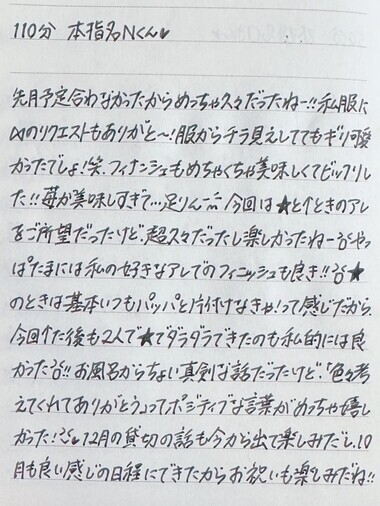 110分 本指名Nくん♥
先月予定合わなかったからめっちゃ久々だったねー!!私服に
⋈のリクエストもありがと〜!服からチラ見えしててもギリ可愛
かったでしょ!笑、フィナンシェもめちゃくちゃ美味しくてビックリし
た!!苺が美味しすぎて…足りん 今回は★と个ときのアレ
をご所望だったけど、超久々だったし楽しかったねー やっ
ぱたまには私の好きなアレでのフィニッシュも良き!! ★
のときは基本いつもパッパと片付けなきゃ!って感じだから
今回个た後も2人で★でダラダラできたのも私的には良
かった!!お風呂からちょい真剣な話だったけど、「色々考
えてくれてありがとうってポジティブな言葉がめっちゃ嬉し
かった! 12月の貸切の話も今から出て楽しみだし、10
月も良い感じの日程にできたからお祝いも楽しみだね!!